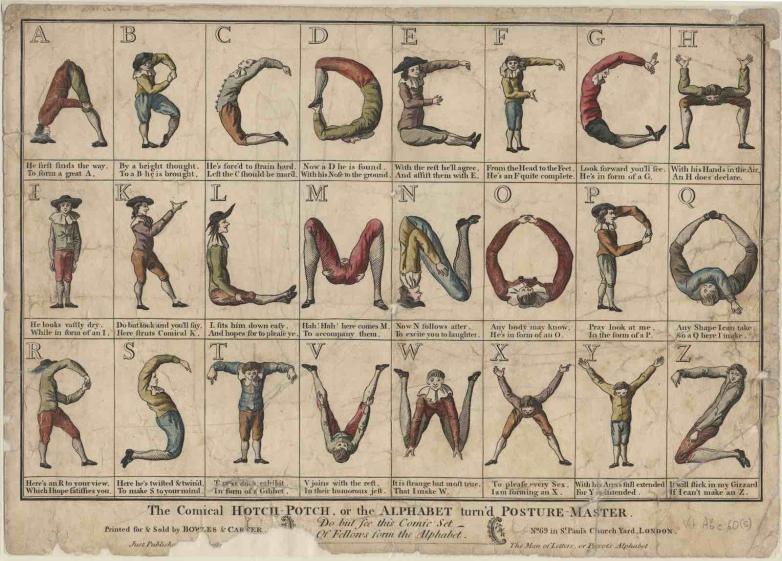 A B C D E F G H
He first finds the way.
To form a great A.
By a bright thought.
To a B he is brought.
He's forc'd to strain hard.
Left the C should be mard.
Now a D he is found.
With his Nose to the ground.
With the rest he'll agree,
And assist them with E.
From the Head to the Feet.
He's an F quite complete.
Look forward you'll see.
He's in form of a G.
With his Hands in the Air,
An H does declare.
I K L M N O P Q
He looks vastly dry.
While in form of an I.
Do but look and you'll say,
Here struts Comical K.
L sits him down easy,
And hopes for to please ye.
Hah! Hah! here comes M.
To accompany them.
Now N follows after.
To excite you to laughter.
Any body may know,
He's in form of an O.
Pray look at me,
In the form of a P.
Any Shape I can take
So a Q here I make.
R S T V W X Y Z
Here's an R to your view.
Which I hope satisfies you.
Here he's twisted & twin'd,
To make S to your mind.
exhibit
In form of a Gibbet.
V joins with the rest.
In their humorous jest.
It is strange but most true,
That I make W.
To please every Sex,
I am forming an X.
With his Arms full extended
for Y intended.
It will stick in my Gizzard
If I can't make an Z.
The Comical HOTCH-POTCH, or the ALPHABET turn'd POSTURE-MASTER.
Do but see this Comic Set
Of Fellows form the Alphabet.
Printed for & Sold by BOWLES & CARVER
No 69 in St Pauls Church Yard, LONDON.
Just Publish
The Man of Letters, or Pierots Alphabet